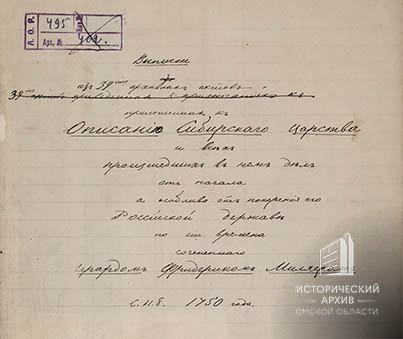 А. О. Р.
495
Арх. №
409.
Выписки
изъ 39ти архивныхъ актовъ
39ти приведенныхъ въ примечанiяхъ къ
приложенная къ
Описанiю Сибирскаго Царства
и всѣхъ
произшедшихъ въ немъ дѣлъ
отъ начала
а особливо отъ покоренiя его
Россiйской державѣ
по сiи времена
сочененнаго
Герардомъ Фридерикомъ Миллеромъ
С.П.б. 1750 года.
ИСТОРИЧЕСКИЙ
АРХИВ
ОМСКОЙ ОБЛАСТИ